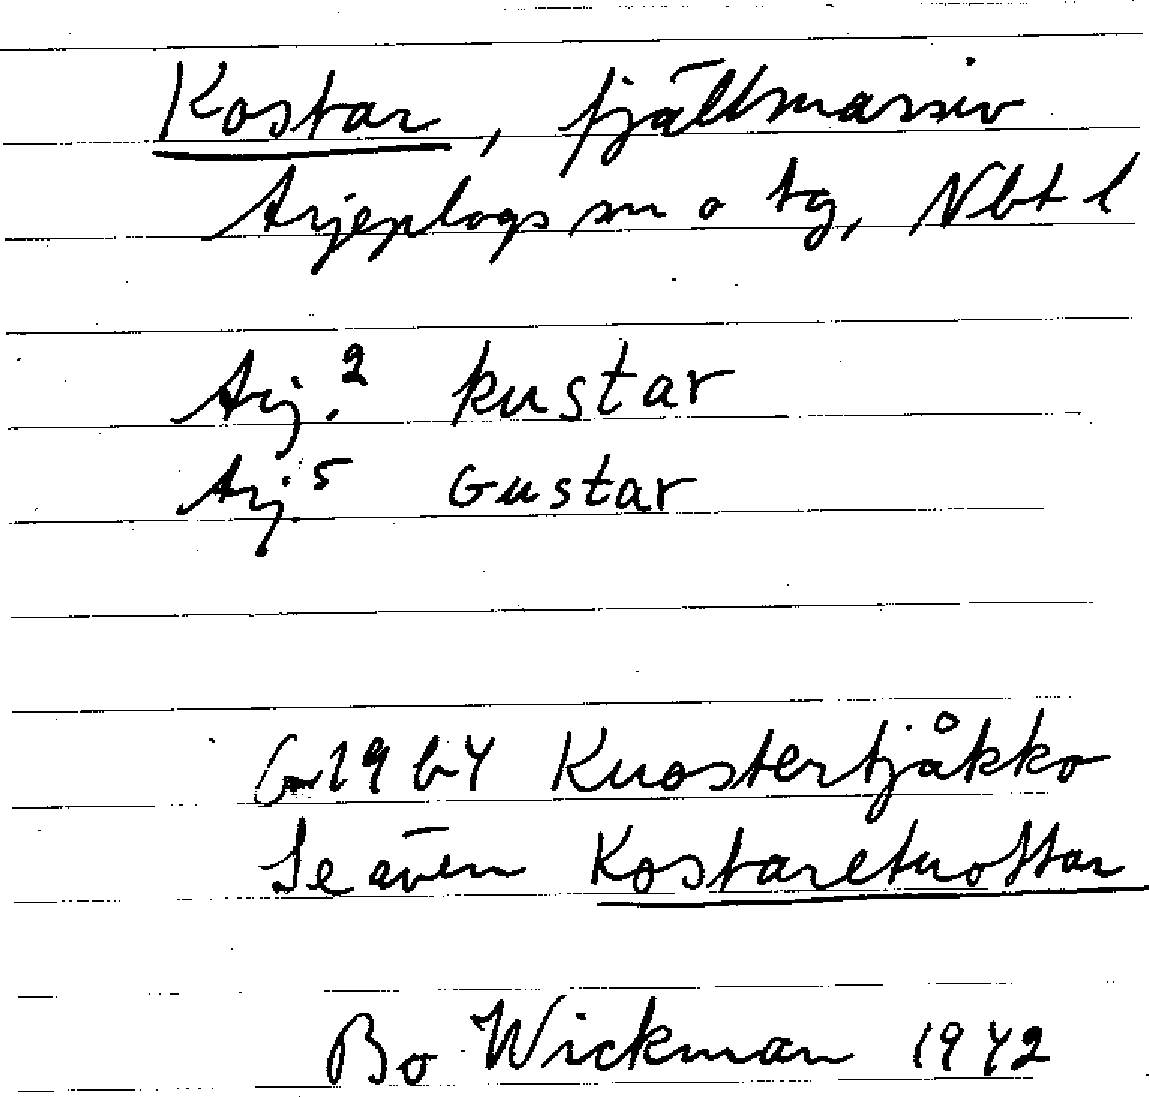 Kostar, fjällmassiv
Arjeplogs sn o tg, Nbt l
Arj.² kustar
Arj.⁵ Gustar
Gm 19 bY Kuostertjåkko
Se även Kostaretuottar
Bo Wickman 1942